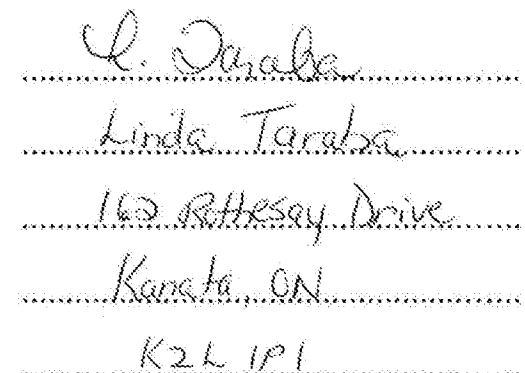 L. Taraba
Linda Taraba
162 Rothesay Drive
Kanata, ON
K2L 1P1